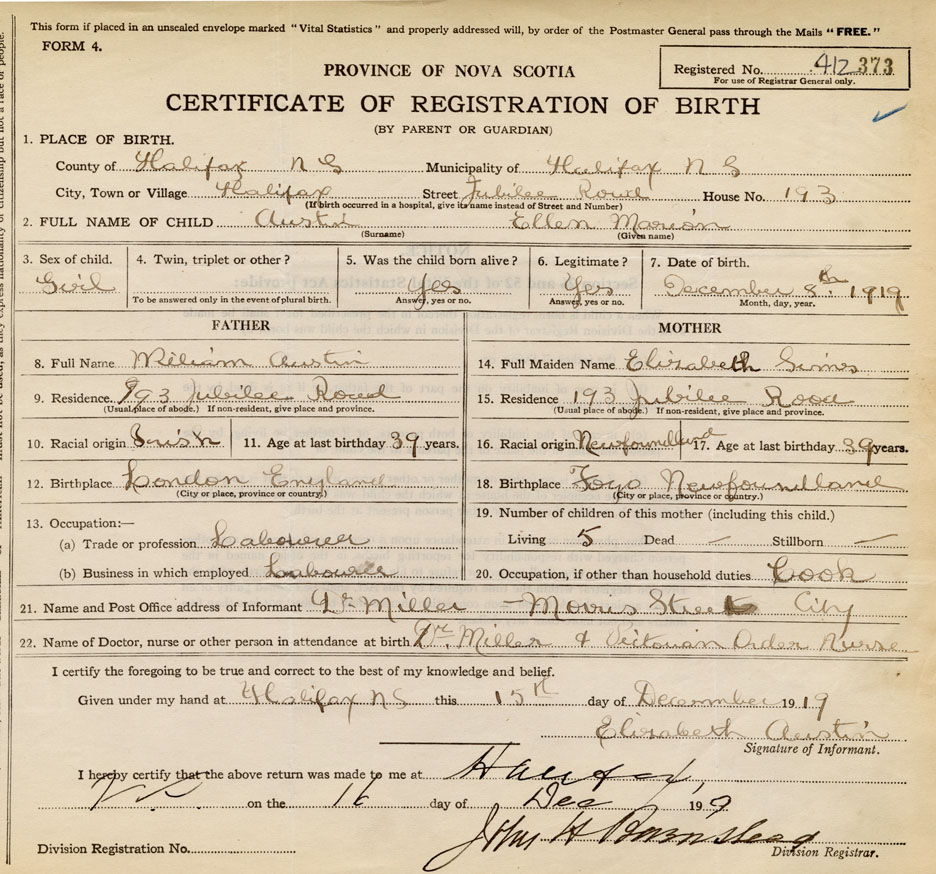 This form if placed in an unsealed envelope marked "Vital Statistics" and properly addressed will, by order of the Postmaster General pass through the Mails "FREE."
FORM 4.
Registered No. 412373
For use of Registrar General only.
PROVINCE OF NOVA SCOTIA
CERTIFICATE OF REGISTRATION OF BIRTH
(BY PARENT OR GUARDIAN)
1. PLACE OF BIRTH.
County of Halifax N S Municipality of Halifax N S
City, Town or Village Halifax Street Jubilee Road House No. 193
(If birth occurred in a hospital, give its name instead of Street and Number)
2. FULL NAME OF CHILD Austin Ellen Marion
(Surname) (Given name)
3. Sex of child. 4. Twin, triplet or other? 5. Was the child born alive? 6. Legitimate? 7. Date of birth.
Girl Yes Yes December 8th 1919
To be answered only in the event of plural birth. Answer, yes or no. Answer, yes or no. Month, day, year.
FATHER MOTHER
8. Full Name William Austin 14. Full Maiden Name Elizabeth Sims
9. Residence. 193 Jubilee Road 15. Residence 193 Jubilee Road
(Usual place of abode.) If non-resident, give place and province. (Usual place of abode.) If non-resident, give place and province.
10. Racial origin 11. Age at last birthday 39 years. 16. Racial origin Newfoundland 17. Age at last birthday 39 years.
12. Birthplace London England 18. Birthplace Fogo Newfoundland
(City or place, province or country.) (City or place, province or country.)
13. Occupation:— 19. Number of children of this mother (including this child.)
(a) Trade or profession Labourer Living 5 Dead — Stillborn —
(b) Business in which employed Labourer 20. Occupation, if other than household duties. Cook
21. Name and Post Office address of Informant Dr Miller – Morris Street City
22. Name of Doctor, nurse or other person in attendance at birth Dr. Miller & Victorian Order Nurse
I certify the foregoing to be true and correct to the best of my knowledge and belief.
Given under my hand at Halifax N S this 15th day of December 1919
Elizabeth Austin
Signature of Informant.
I hereby certify that the above return was made to me at Halifax,
on the 16 day of Dec 1919
John H Barnstead
Division Registration No. Division Registrar.